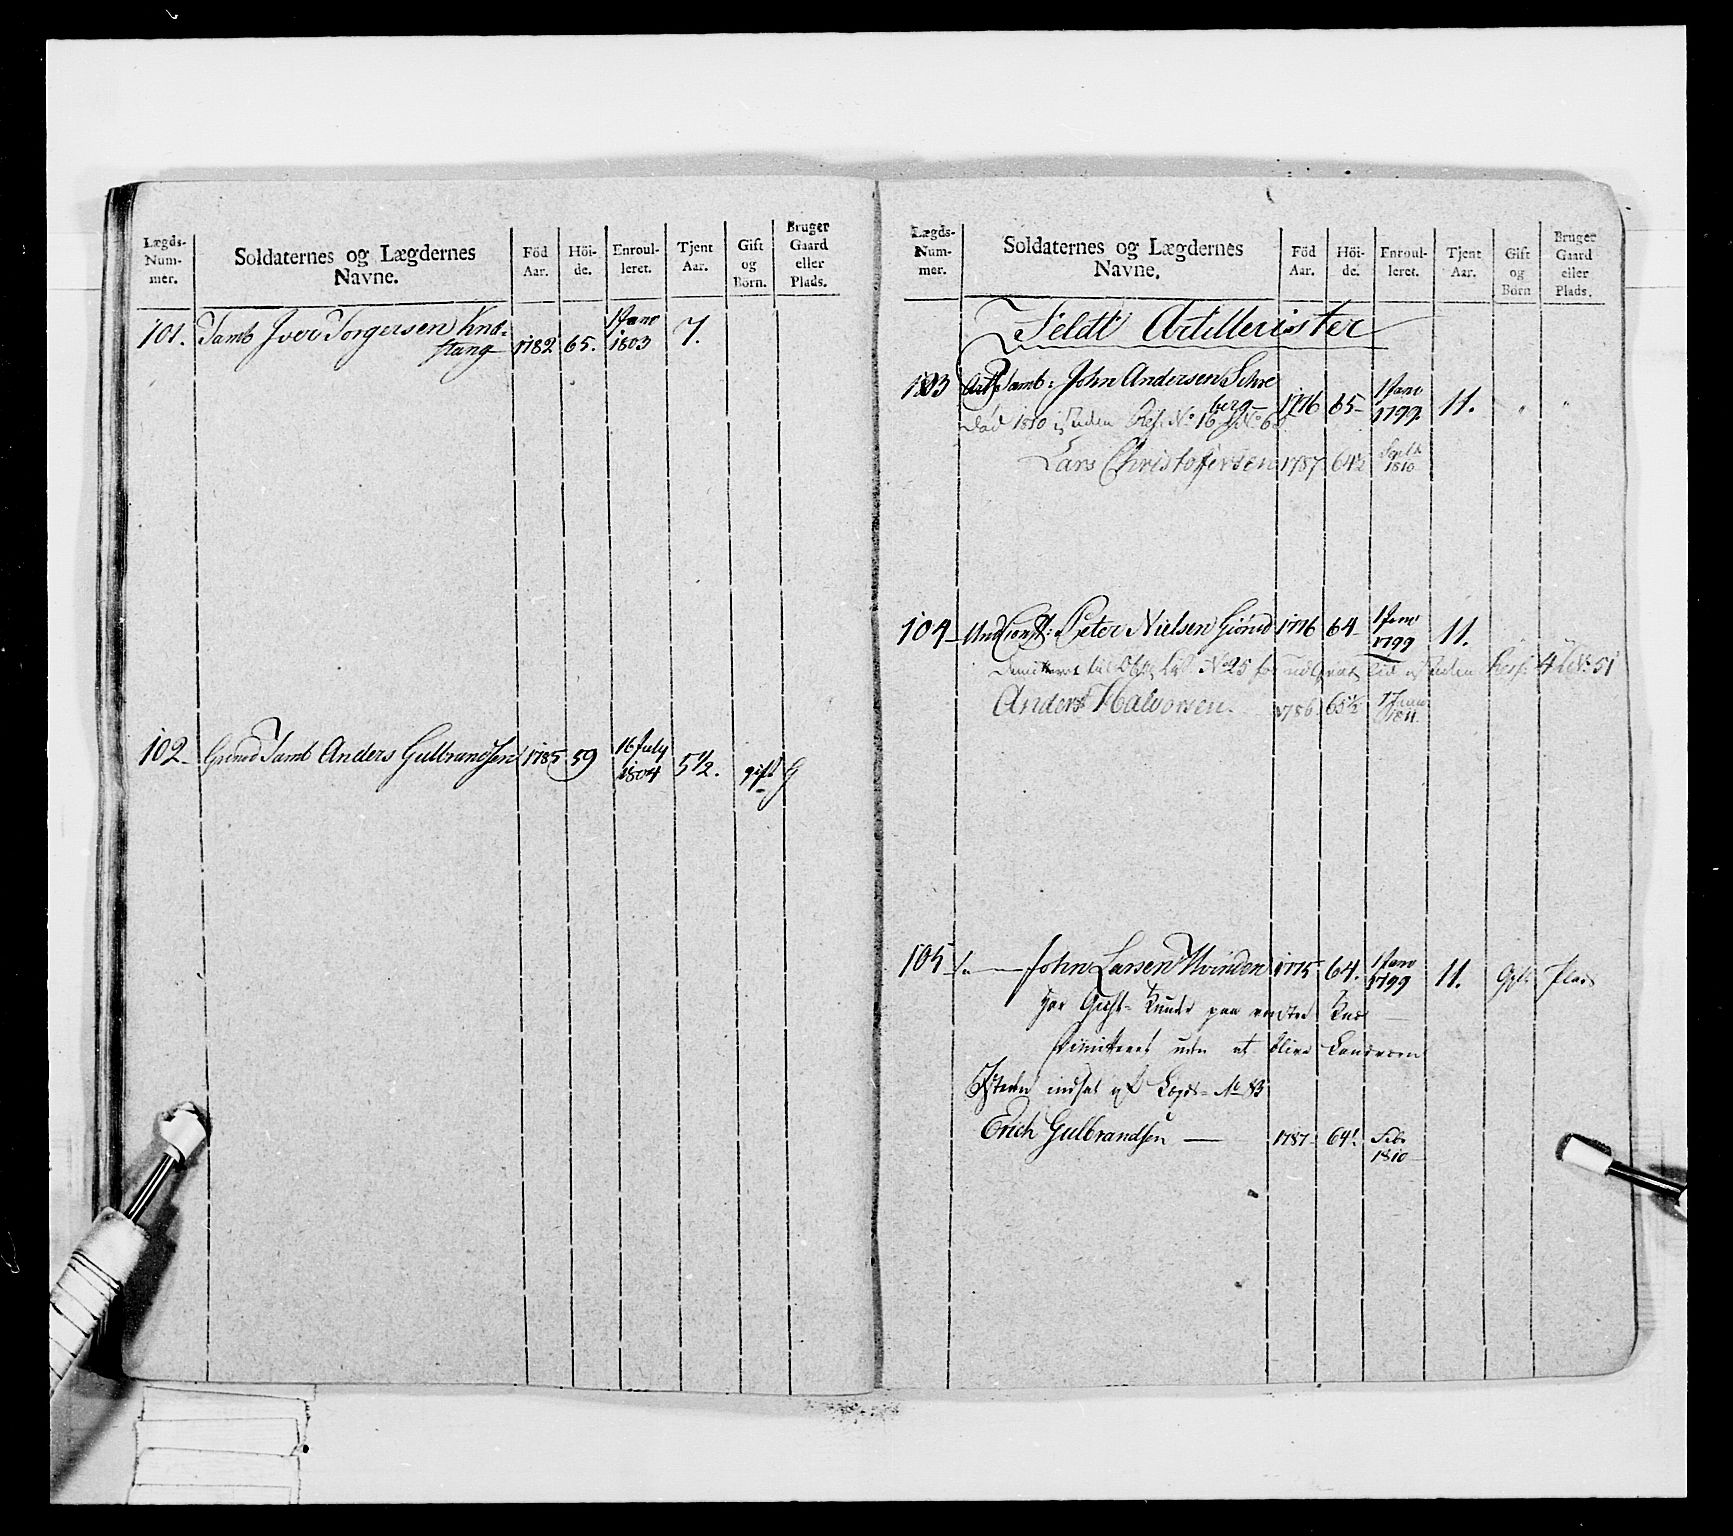 Lægds-
Num-
mer.
Soldaternes og Lægdernes
Navne.
Föd
Aar.
Höi-
de.
Enroul-
leret.
Tjent
Aar.
Gift
og
Börn.
Bruger
Gaard
eller
Plads.
101. Tamb Iver Torgersen Kna- 1782 65. 1 Janv 1803 7.
stang
102. Tamb Anders Gulbrandsen 1785 59 16 July 1804 5 1/2. gift G
Lægds-
Num-
mer.
Soldaternes og Lægdernes
Navne.
Föd
Aar.
Höi-
de.
Enroul-
leret.
Tjent
Aar.
Gift
og
Börn
Bruger
Gaard
eller
Plads.
Feldt Artillerister
103 Tamb: John Andersen Schre 1776 65 1 Janv 1799 11. " "
berg
Död 1810 No 16
Lars Christofersen 1787 64 1/2 1810
104 Und Const: Peter Nielsen 1776 64 1 Janv 1799 11.
til No 25 for No 51
Anders Halvorsen. 1786 65 1/2 1 Janv 1811
105 John Larsen Hvinden 1775 64. 1 Janv 1799 11. Gift Plads
har Gigt paa
Dimitteret uden at blive Landværn
indsat af Lægd No 83
Erich Gulbrandsen 1787 64 Febr 1810